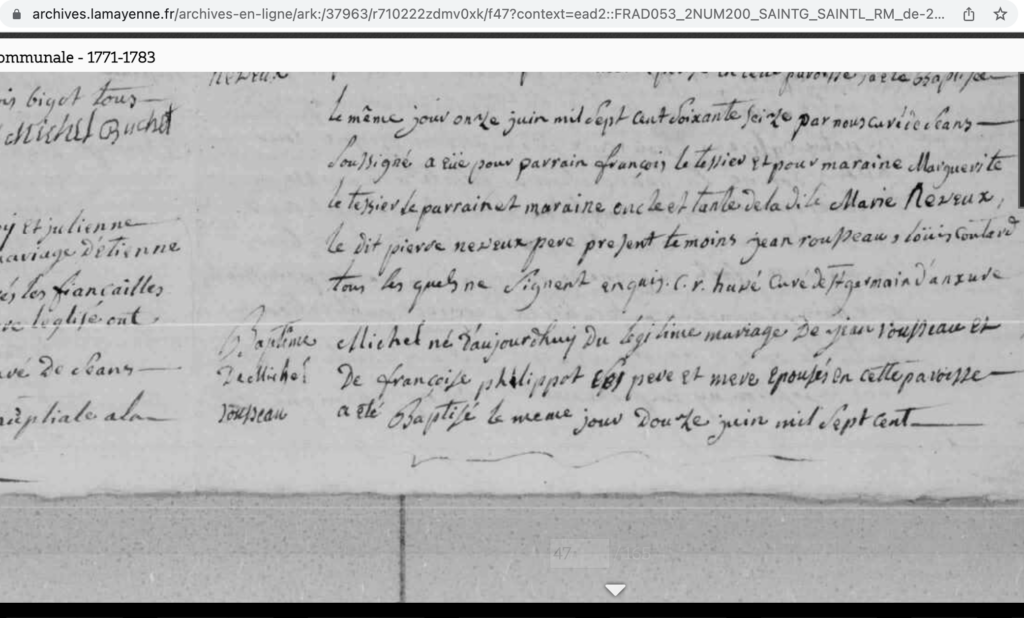 archives.lamayenne.fr/archives-en-ligne/ark:/37963/r710222zdmv0xk/f47?context=ead2::FRAD053_2NUM200_SAINTG_SAINTL_RM_de-2...
ommunale - 1771-1783
is bigot tous
Michel Buchet
y et julienne
mariage d'etienne
és les fiançailles
l'eglise ont
uvé de Ceans
nuptiale a la
neveux
paroisse, a été Baptisée
le même jour onze juin mil Sept cent Soixante Seize par nous curé de Ceans
Soussigné a eüe pour parrain françois le tessier et pour maraine Marguerite
le tessier le parrain et maraine oncle et tante de la dite Marie Neveux,
le dit pierre neveux pere present temoins jean rousseau, loüis coutard
tous les quels ne Signent enquis. C. r. huvé Curé de St germain d'anxure
Baptême
De Michel
rousseau
Michel né d'aujourdhuy Du legitime mariage De jean rousseau et
De françoise philippot Ses pere et mere epousés en cette paroisse
a eté Baptisé le meme jour Douze juin mil Sept cent
47